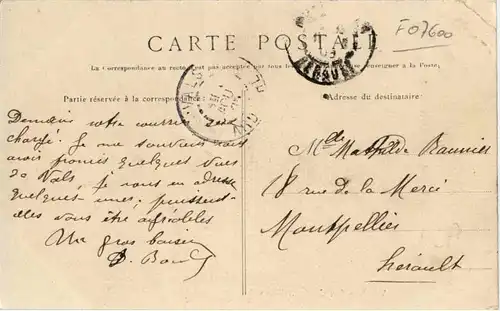 F07600
CARTE POSTALE
La Correspondance au recto n'est pas acceptée par tous les
se renseigner à la Poste.
Partie réservée à la correspondance
Adresse du destinataire.
Demain votre courrier sera
chargé. Je me souviens vous
avoir promis quelques vues
de Vals, je vous en adresse
quelques unes; puissent-
elles vous être agréables
Un gros baiser
Melle Mathilde
18 rue de la Merci
Montpellier
Hérault